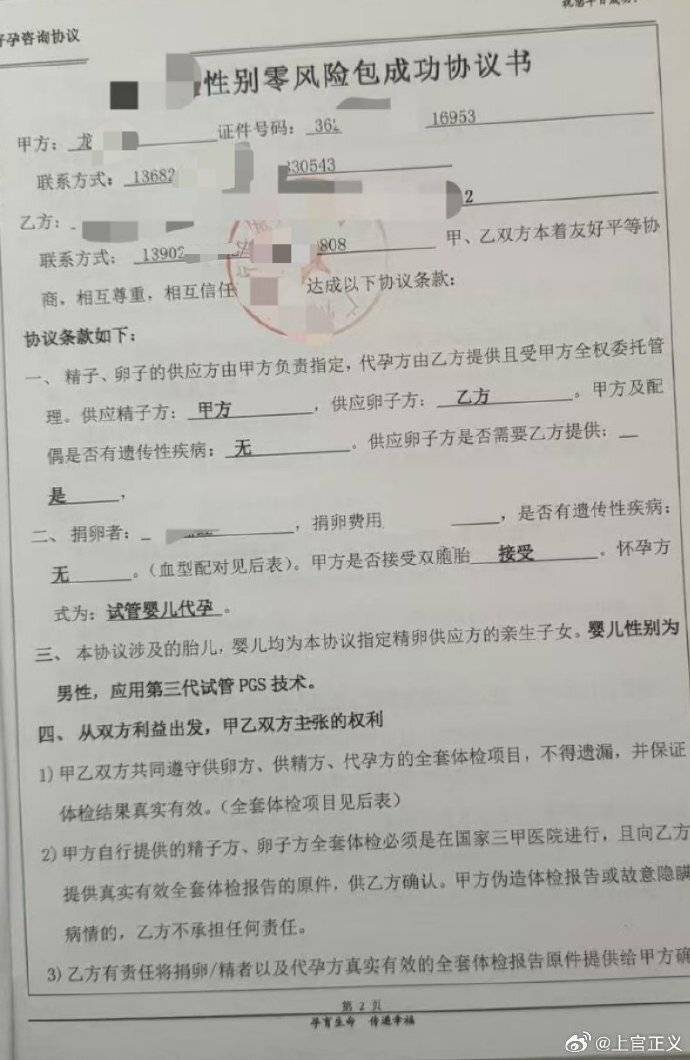 好孕咨询协议
性别零风险包成功协议书
甲方：龙 证件号码：362 16953
联系方式：13682 330543
乙方： 2
联系方式：13902 808 甲、乙双方本着友好平等协
商，相互尊重，相互信任 达成以下协议条款：
协议条款如下：
一、精子、卵子的供应方由甲方负责指定，代孕方由乙方提供且受甲方全权委托管
理。供应精子方：甲方，供应卵子方：乙方。甲方及配
偶是否有遗传性疾病：无。供应卵子方是否需要乙方提供：
是，
二、捐卵者： ，捐卵费用 ，是否有遗传性疾病：
无。（血型配对见后表）。甲方是否接受双胞胎 接受。怀孕方
式为：试管婴儿代孕。
三、本协议涉及的胎儿，婴儿均为本协议指定精卵供应方的亲生子女。婴儿性别为
男性，应用第三代试管 PGS 技术。
四、从双方利益出发，甲乙双方主张的权利
1) 甲乙双方共同遵守供卵方、供精方、代孕方的全套体检项目，不得遗漏，并保证
体检结果真实有效。（全套体检项目见后表）
2) 甲方自行提供的精子方、卵子方全套体检必须是在国家三甲医院进行，且向乙方
提供真实有效全套体检报告的原件，供乙方确认。甲方伪造体检报告或故意隐瞒
病情的，乙方不承担任何责任。
3) 乙方有责任将捐卵/精者以及代孕方真实有效的全套体检报告原件提供给甲方确
第 2 页
孕育生命 传递幸福
@上官正义